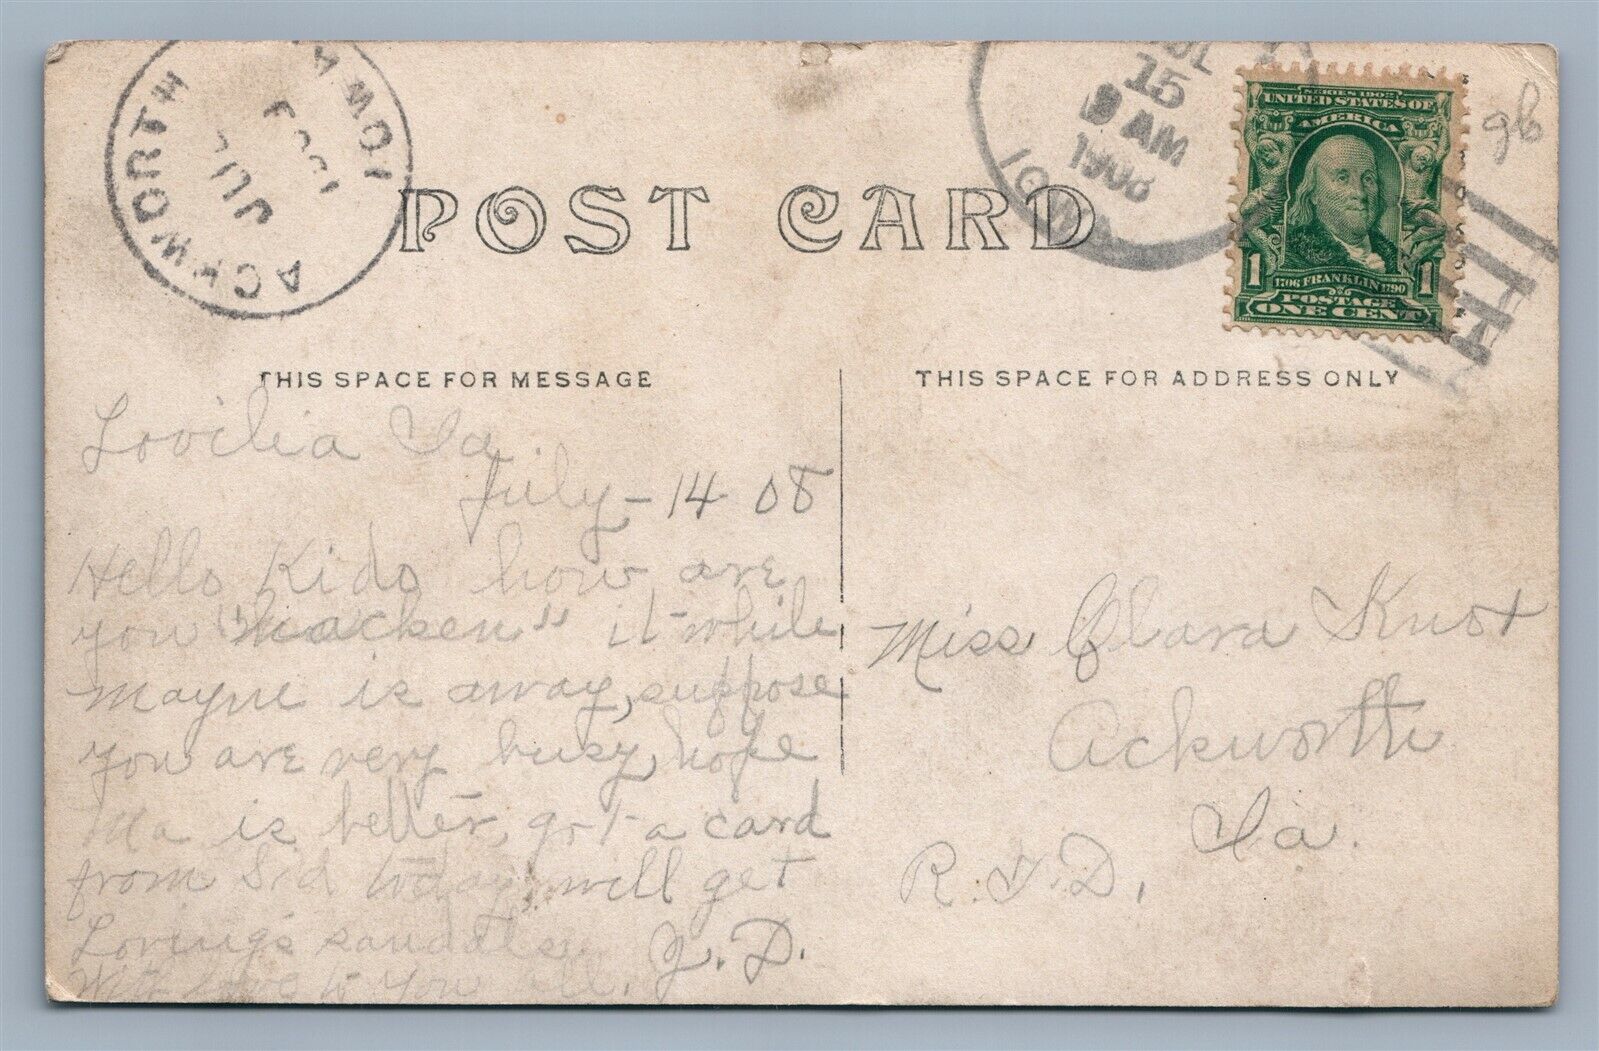 ACKWORTH
IOWA
JUL
JUL
15
AM
1908
IOWA
SERIES 1902
UNITED STATES OF
AMERICA
1 1706 FRANKLIN 1790 1
POSTAGE
ONE CENT
gb
POST CARD
THIS SPACE FOR MESSAGE
Lovilia Ia
July - 14 08
Hello Kido how are
you "hacken" it while
Mayne is away, suppose
you are very busy, hope
Ma is better, got a card
from Sid today, will get
Loving's sandals.
With love to You all. J. D.
THIS SPACE FOR ADDRESS ONLY
Miss Clara Knox
Ackworth
Ia.
R.F.D.